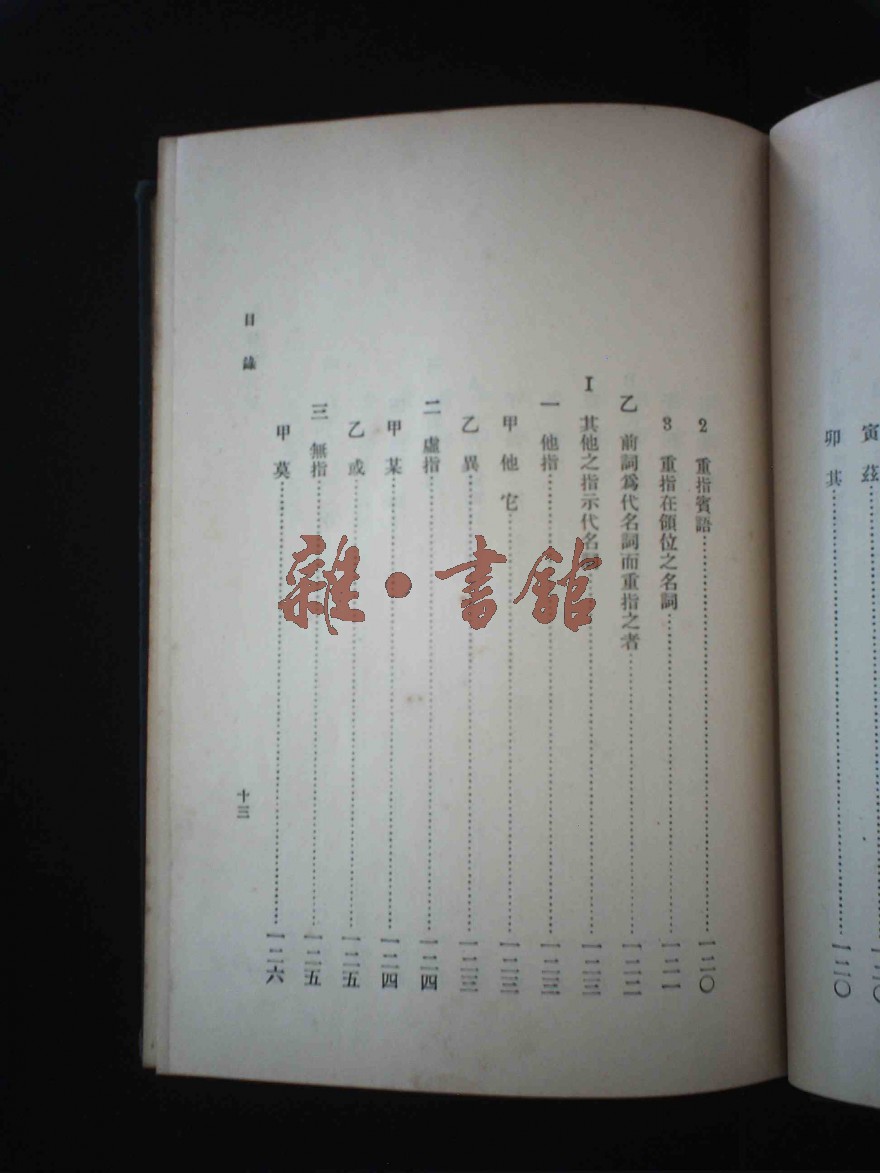 寅 茲……二〇
卯 其……一二〇
2 重指賓語……一二〇
3 重指在領位之名詞……一二一
乙 前詞爲代名詞而重指之者……一二二
I 其他之指示代名詞……一二三
一 他指……一二三
甲 他 它……一二三
乙 異……一二三
二 虛指……一二四
甲 某……一二四
乙 或……一二五
三 無指……一二五
甲 莫……一二六
目錄
十三
雜·書舘